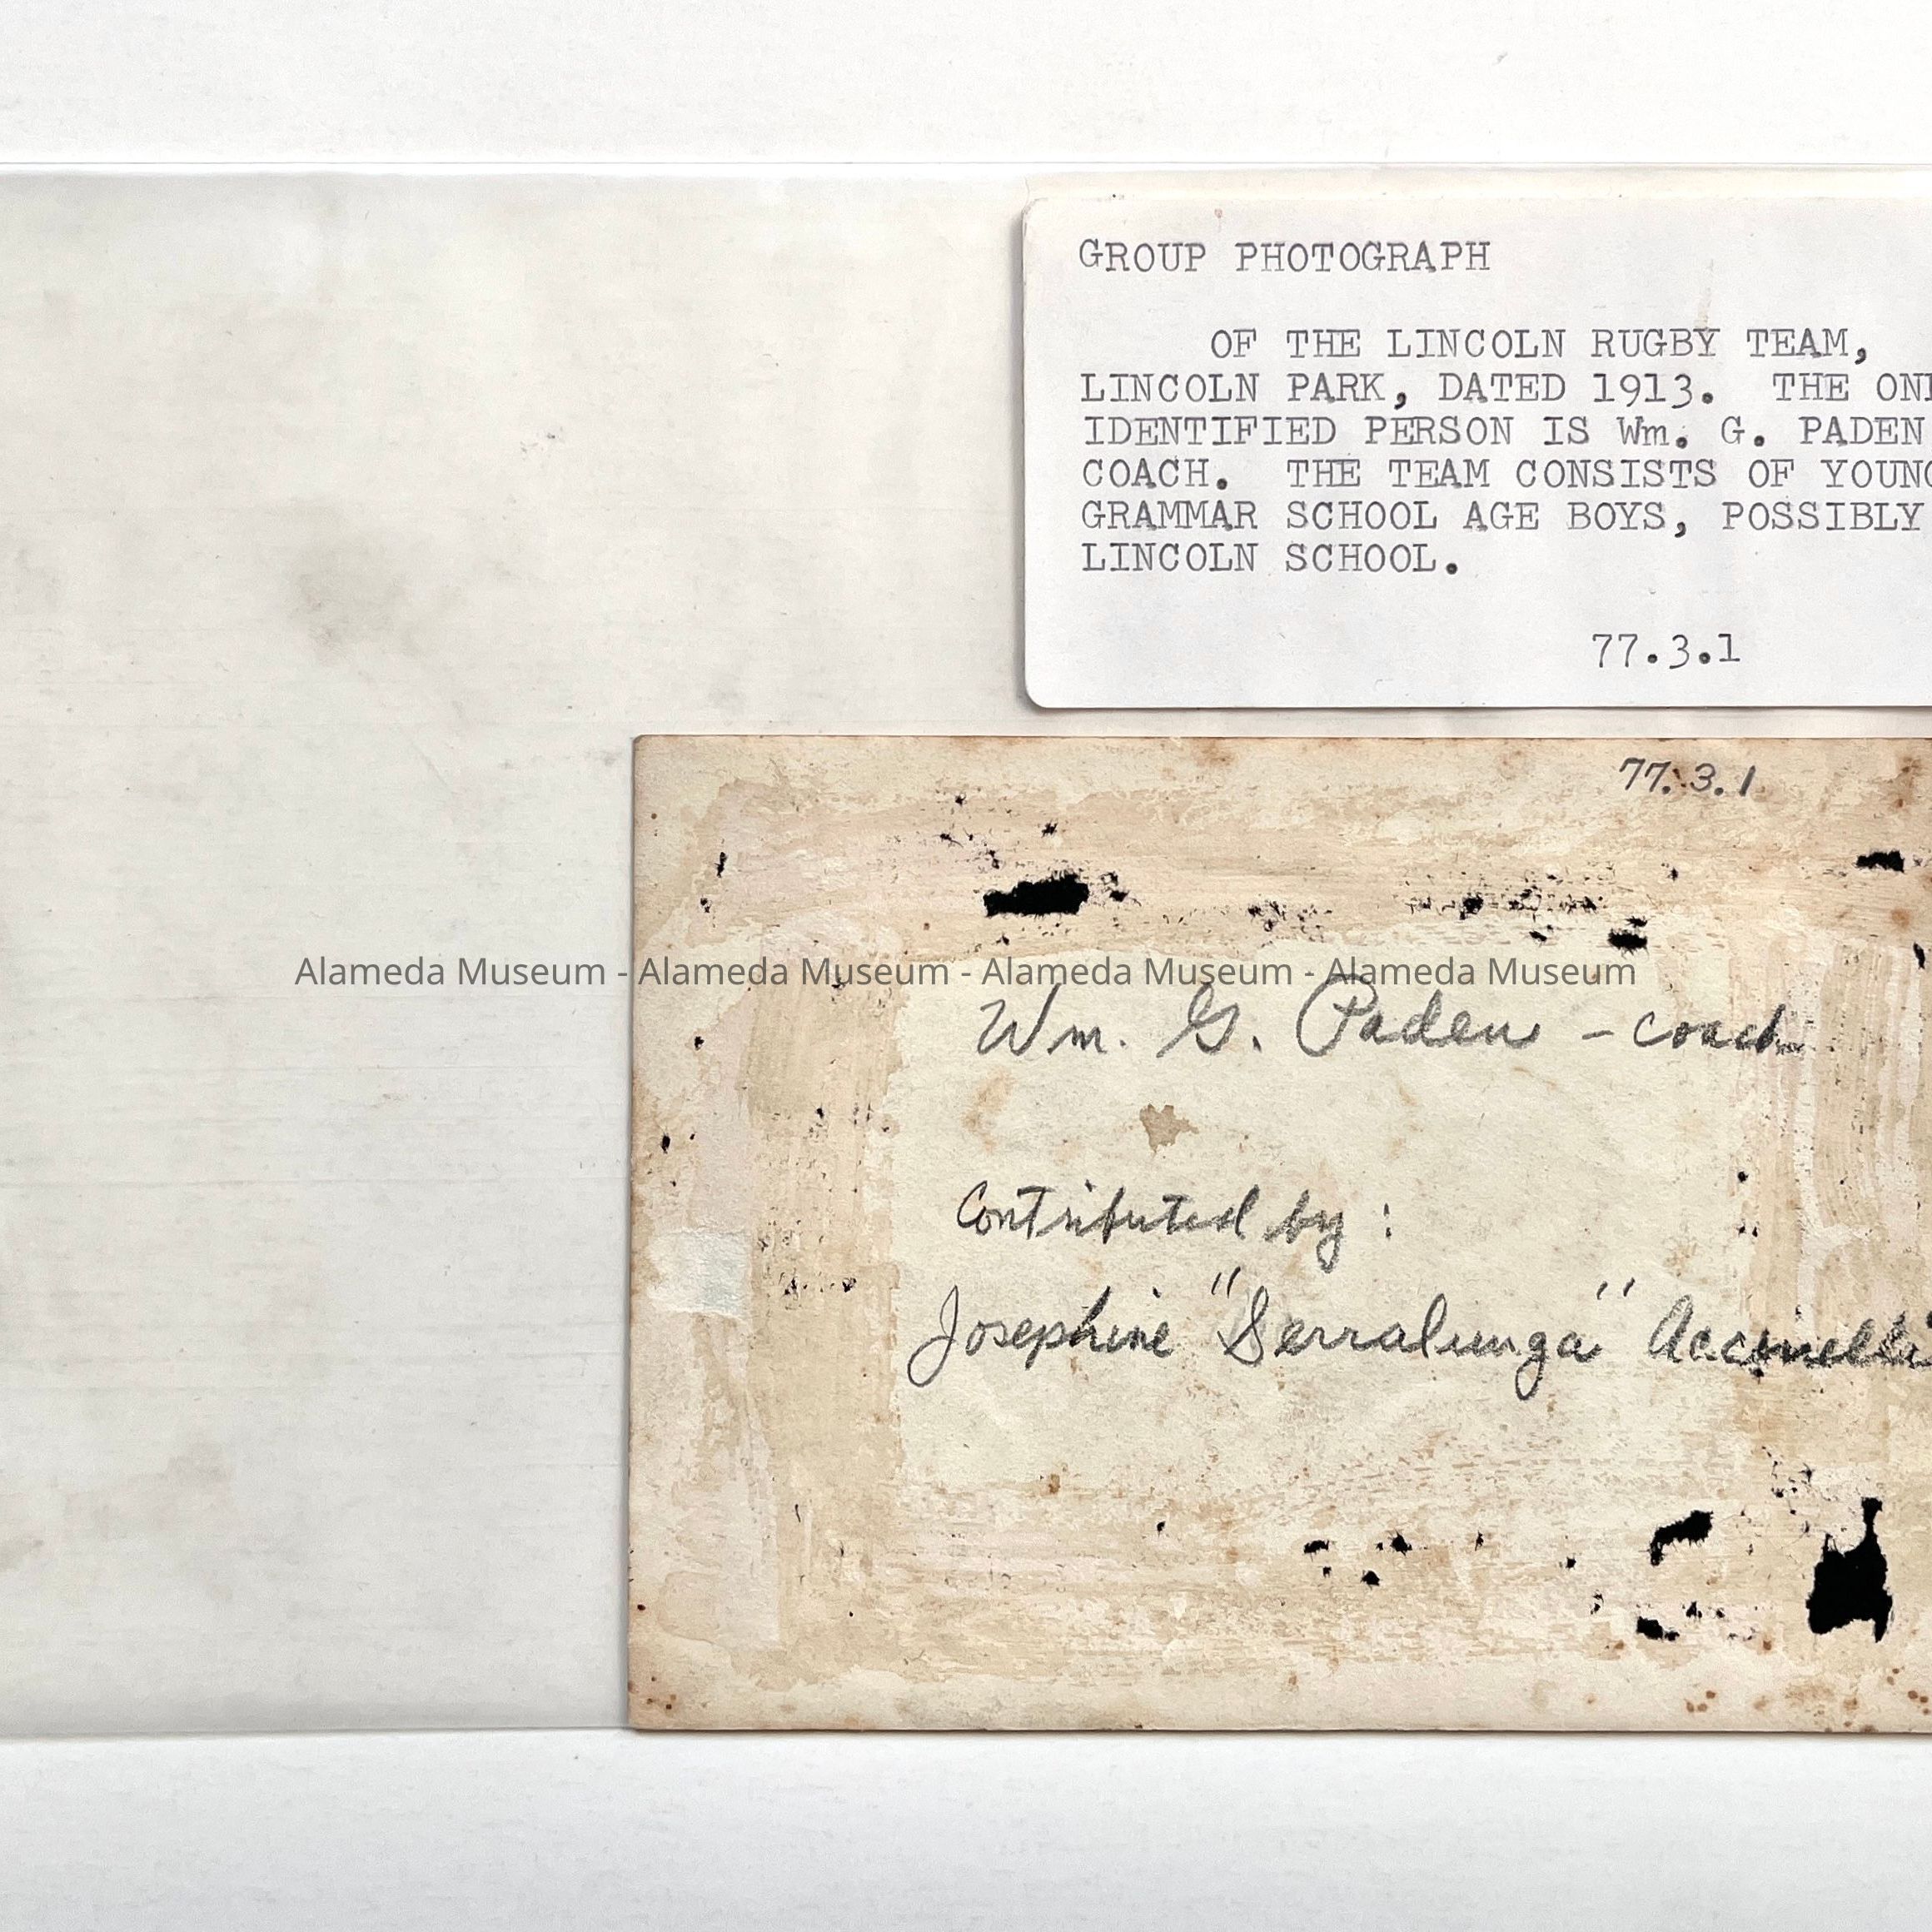 GROUP PHOTOGRAPH
OF THE LINCOLN RUGBY TEAM,
LINCOLN PARK, DATED 1913. THE
IDENTIFIED PERSON IS Wm. G. PADEN
COACH. THE TEAM CONSISTS OF
GRAMMAR SCHOOL AGE BOYS, POSSIBLY
LINCOLN SCHOOL.
77.3.1
77.3.1
Alameda Museum - Alameda Museum - Alameda Museum - Alameda Museum
Wm. G. Paden - coach
Contributed by :
Josephine "Serralunga" Accinelli